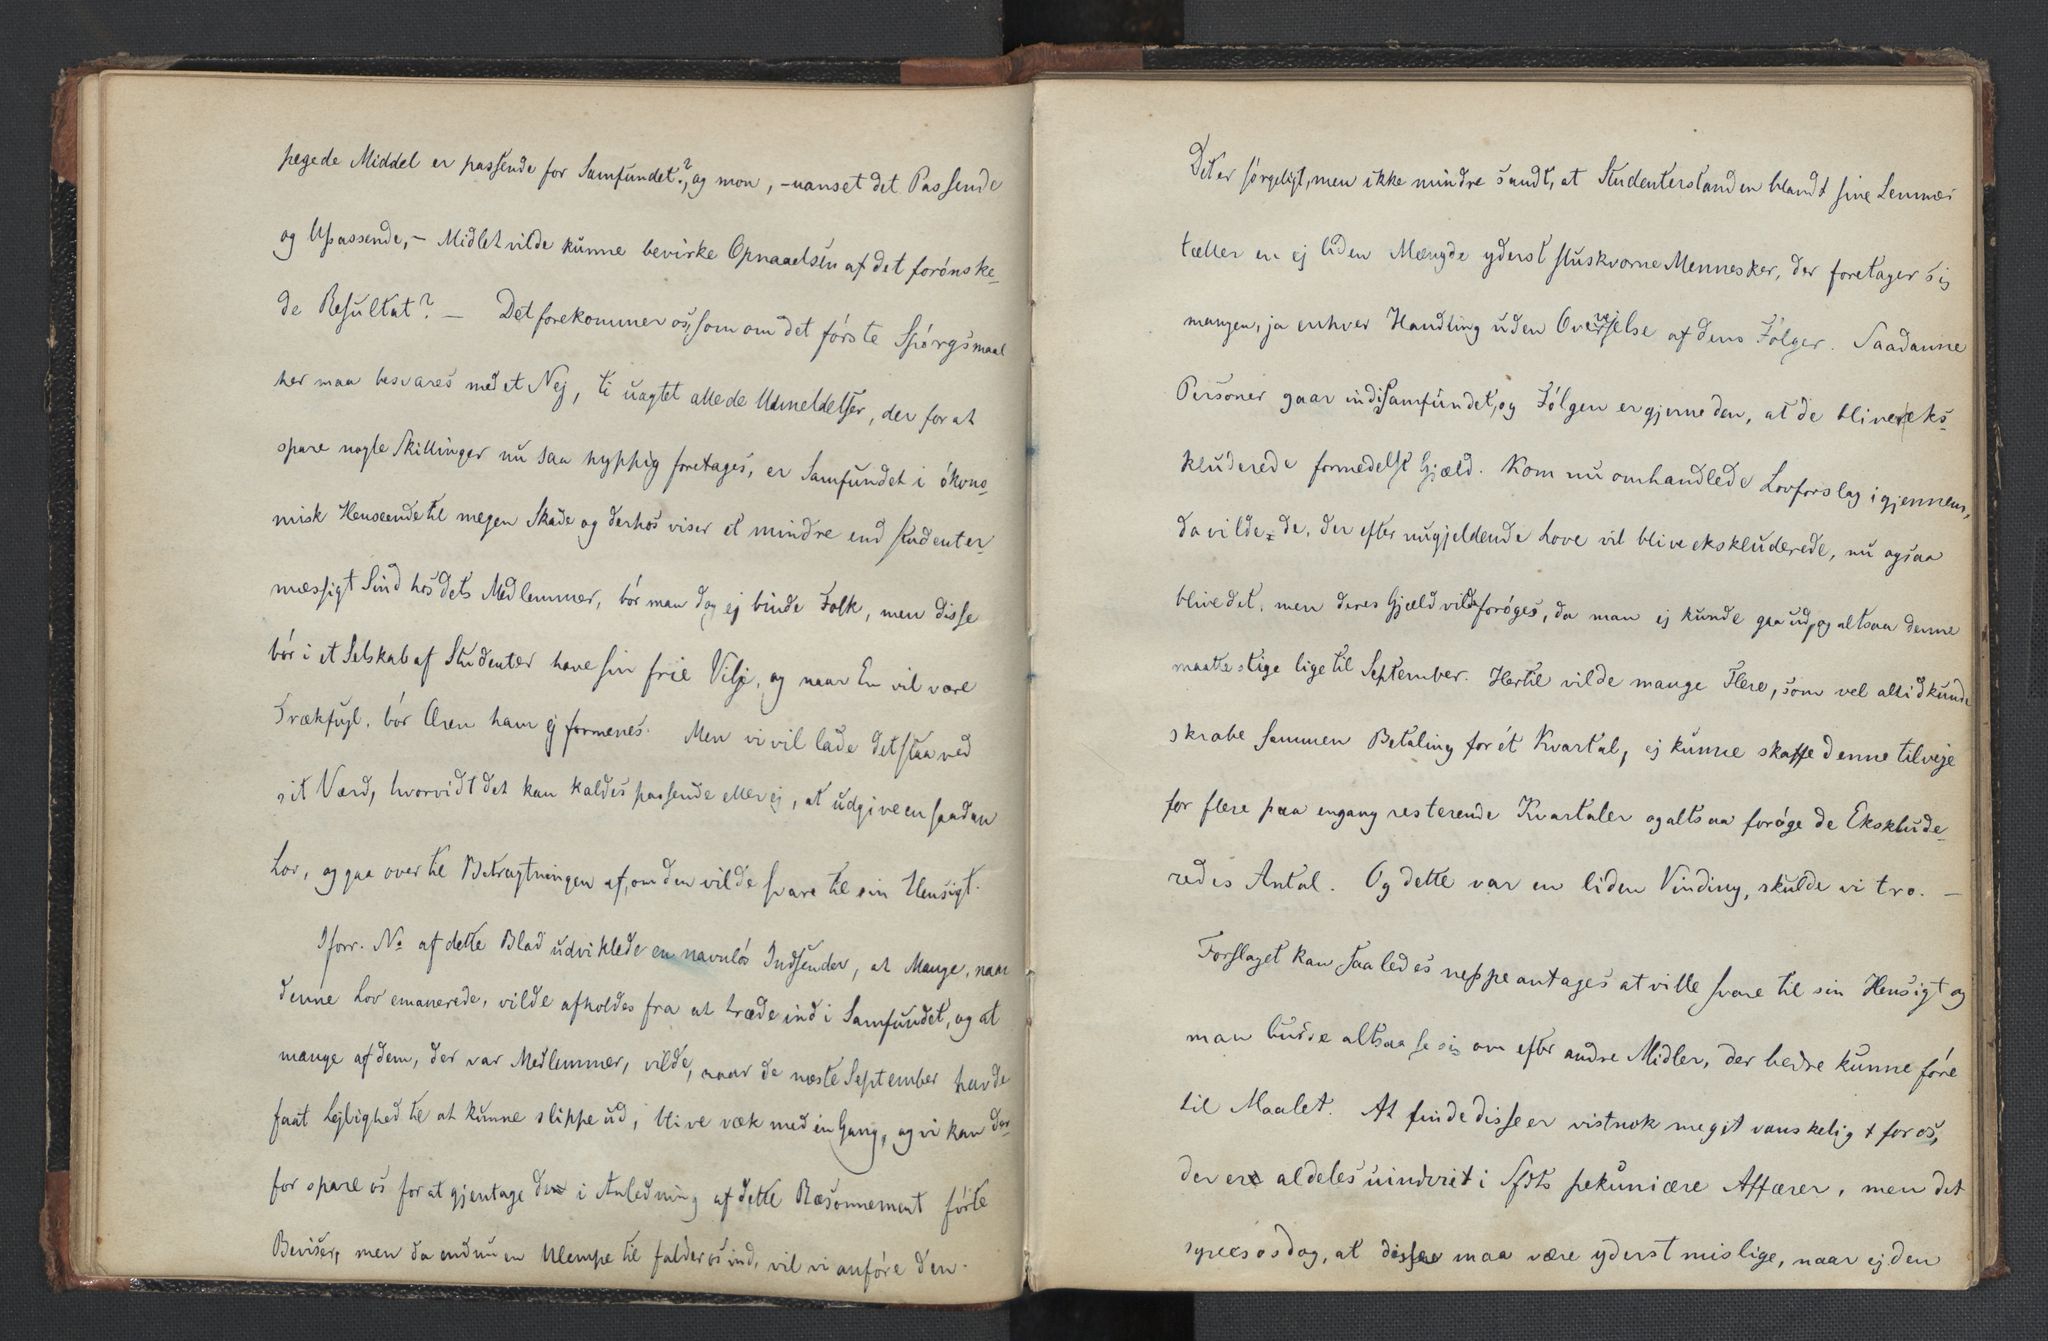 pegede Middel er passende for Samfundet?, og mon, – uanset det Passende
og Upassende, – Midlet vilde kunne bevirke Opnaaelsen af det forönske-
de Resultat? – Det forekommer os, som om det förste Spörgsmaal
her maa besvares med et Nej, ti uagtet alle de Udmeldelser, der for at
spare nogle Skillinger nu saa hyppig foretages, er Samfundet i ökono-
misk Henseende til megen Skade og derhos viser et mindre end Student er-
mæssigt Sind hos dets Medlemmer, bör man dog ej binde Folk, men disse
bör i et Selskab af Studenter have sin frie Vilje, og naar En vil være
Trækfugl, bör Æren ham ej formenes. Men vi vil lade det staa ved
sit Værd, hvorvidt det kan kaldes passende eller ej, at udgive en saadan
Lov, og gaa over til Betragtningen af, om den vilde svare til sin Hensigt.
I forr. No af dette Blad udviklede en navnlös Indsender, at Mange, naar
denne Lov emanerede, vilde afholdes fra at træde ind i Samfundet, og at
mange af dem, der var Medlemmer, vilde, naar de næste September havde
faat Lejlighed til at kunne slippe ud, blive væk med én Gang, og vi kan der-
for spare os for at gjentage de i Anledning af dette Ræsonnement förte
Beviser, men da endnu en Ulempe til falder os ind, vil vi anföre den.
Det er sörgeligt, men ikke mindre sandt, at Studenterstanden blandt sine Lemmer
tæller en ej liden Mængde yderst sluskvorne Mennesker, der foretager sig
mangen, ja enhver Handling uden Overvejelse af dens Fölger. Saadanne
Personer gaar ind i Samfundet, og Fölgen er gjerne den, at de bliver eks-
kluderede formedelst Gjæld. Kom nu omhandlede Lovforslag igjennem,
da vilde de, der efter nugjeldende Love vil blive ekskluderede, nu ogsaa
blive det, men deres Gjæld vilde foröges, da man ej kunde gaa ud, og altsaa denne
maatte stige lige til September. Hertil vilde mange Flere, som vel altid kunde
skrabe sammen Betaling for ét Kvartal, ej kunne skaffe denne tilveje
for flere paa engang resterende Kvartaler og altsaa foröge de Eksklude-
redes Antal. Og dette var en liden Vinding, skulde vi tro. –
Forslaget kan saaledes neppe antages at ville svare til sin Hensigt og
man burde altsaa se sig om efter andre Midler, der bedre kunne före
til Maalet. At finde disse er vistnok meget vanskeligt for os,
der er aldeles uindviet i Sfdts pekuniære Affærer, men det
synes os dog, at disse maa være yderst mislige, naar ej den